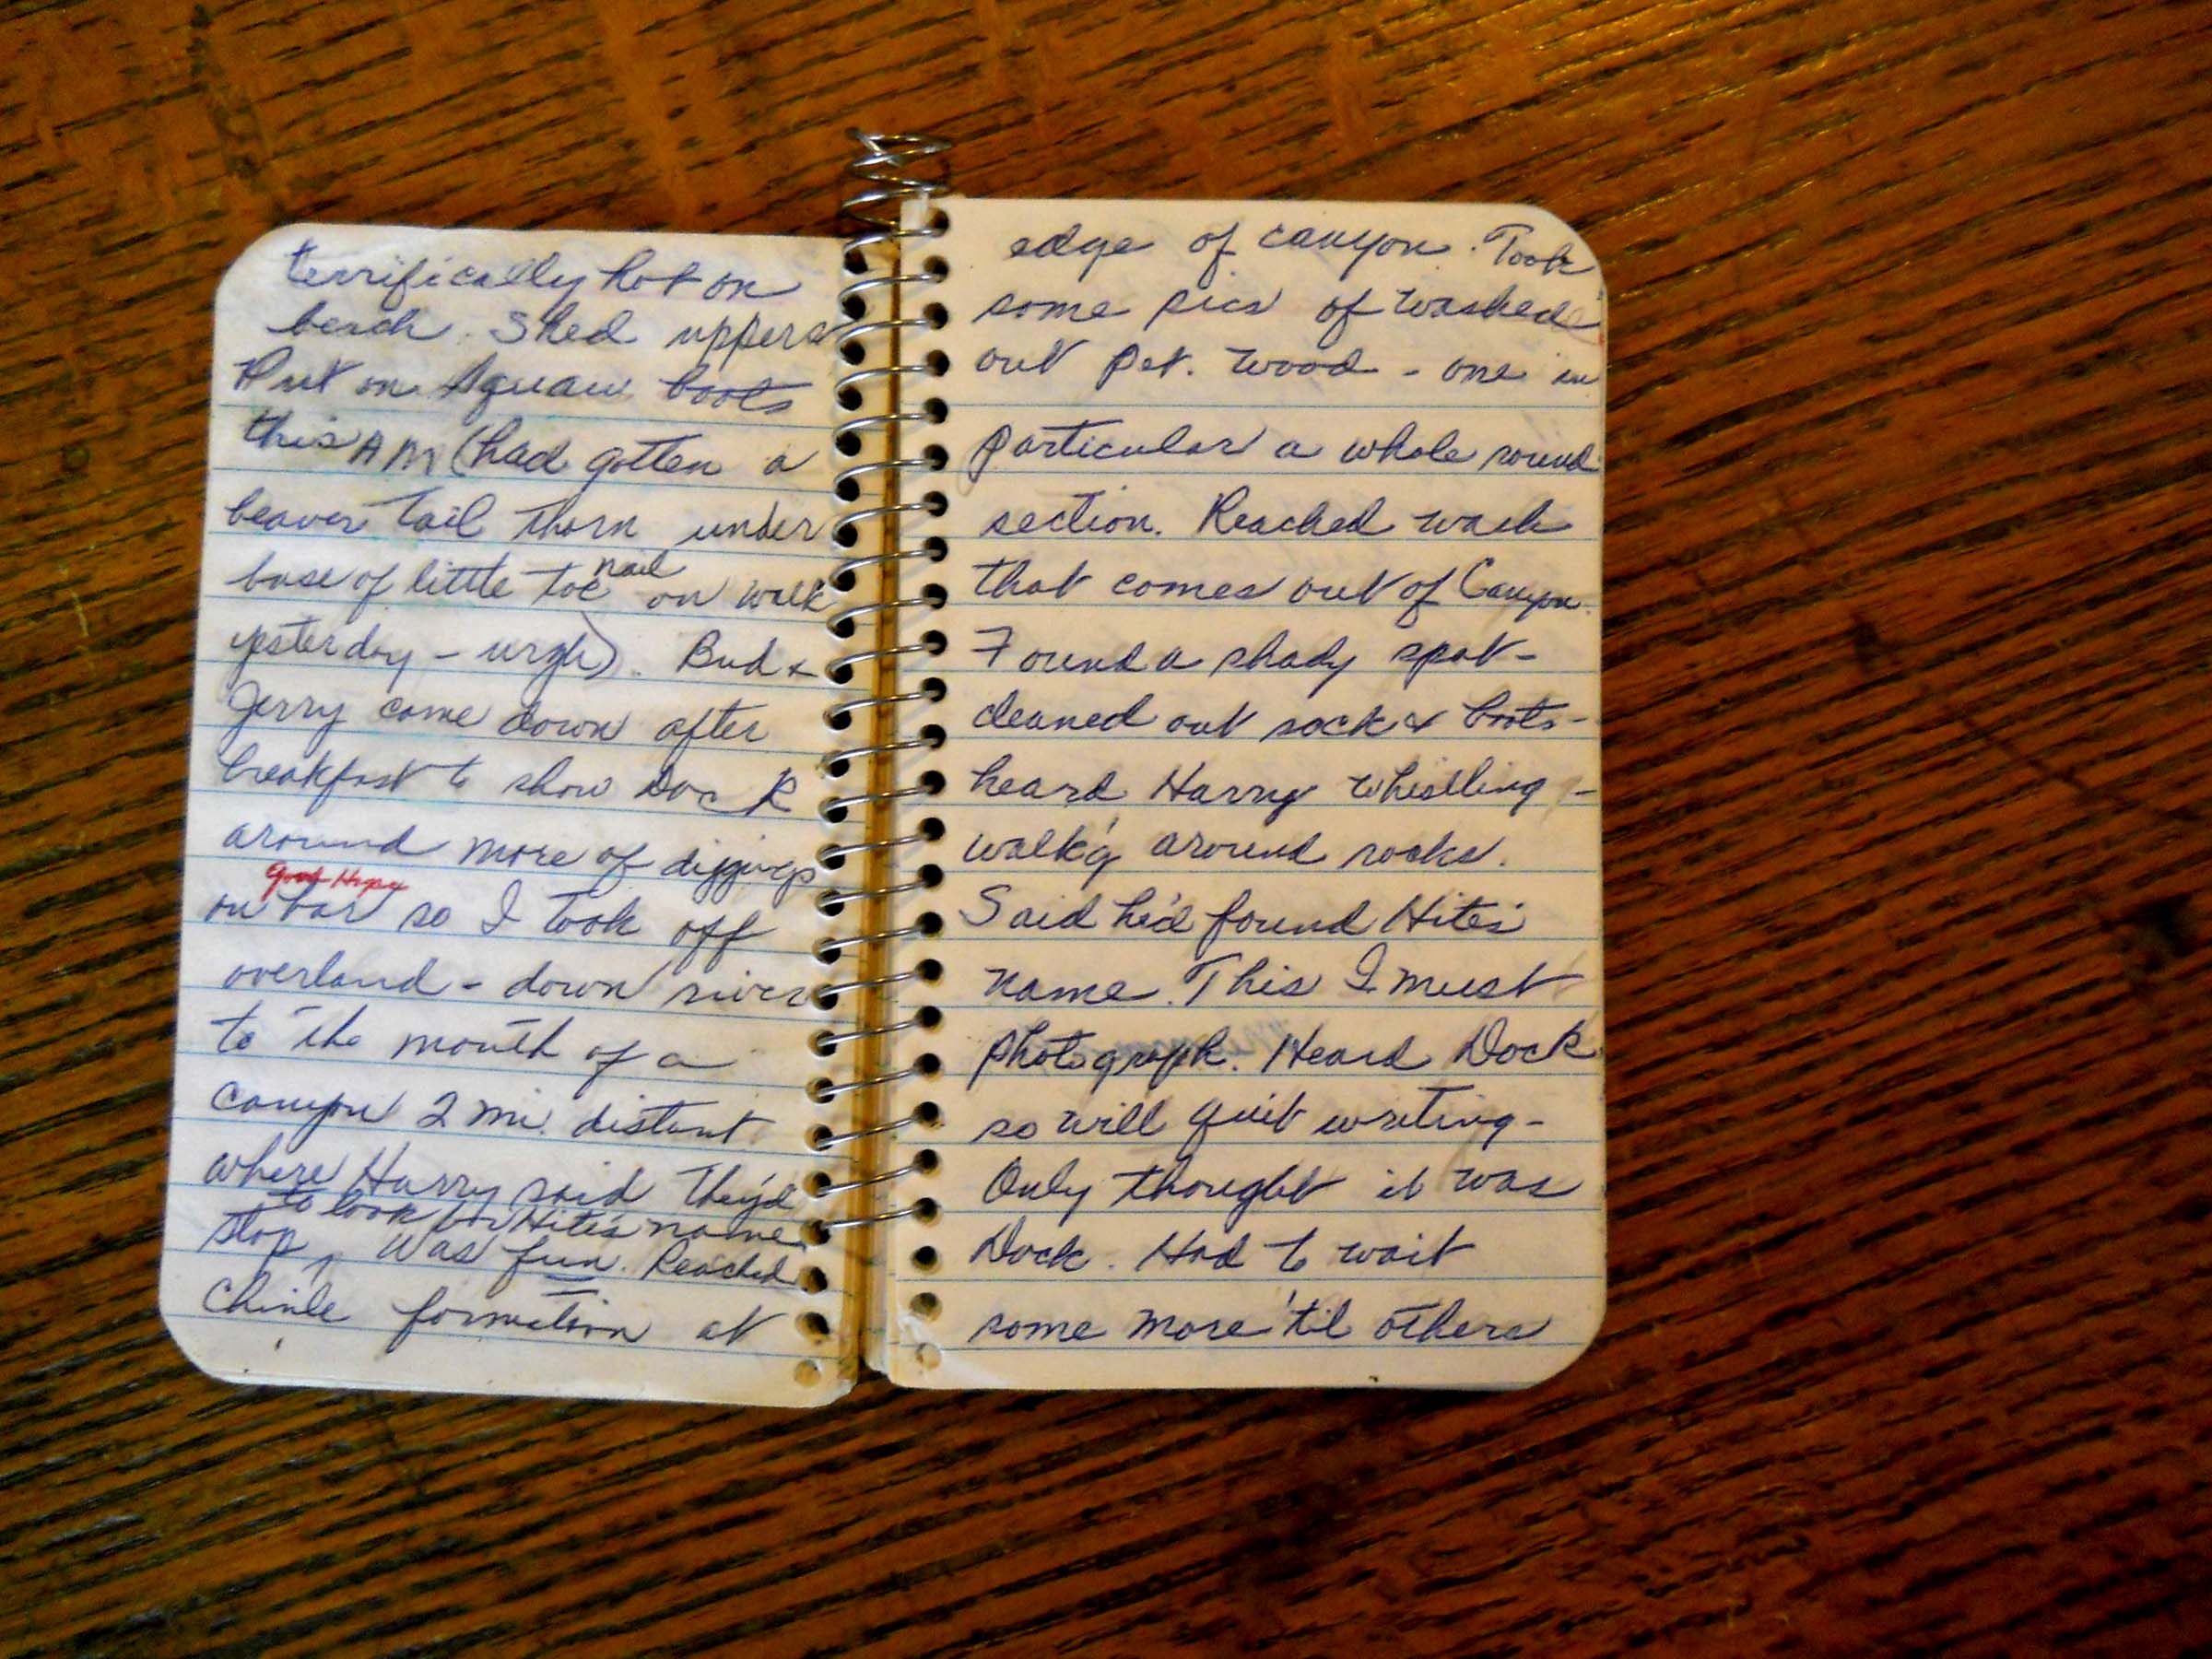 terrifically hot on
beach. Shed uppers
Put on Squaw boots
this AM (had gotten a
beaver tail thorn under
base of little toe nail on walk
yesterday - urgh). Bud &
Jerry come down after
breakfast to show Dock
around more of diggings
Good Hope
on bar so I took off
overland - down river
to the mouth of a
canyon 2 mi. distant
where Harry said they'd
to look for Hite's name
stop, was fun. Reached
Chinle formation at
edge of canyon. Took
some pics of washed
out pet. wood - one in
particular a whole round
section. Reached wash
that comes out of Canyon.
Found a shady spot -
cleaned out sock & boots -
heard Harry whistling -
walk'g around rocks.
Said he'd found Hite's
name. This I must
photograph. Heard Dock
so will quit writing -
Only thought it was
Dock. Had to wait
some more 'til others